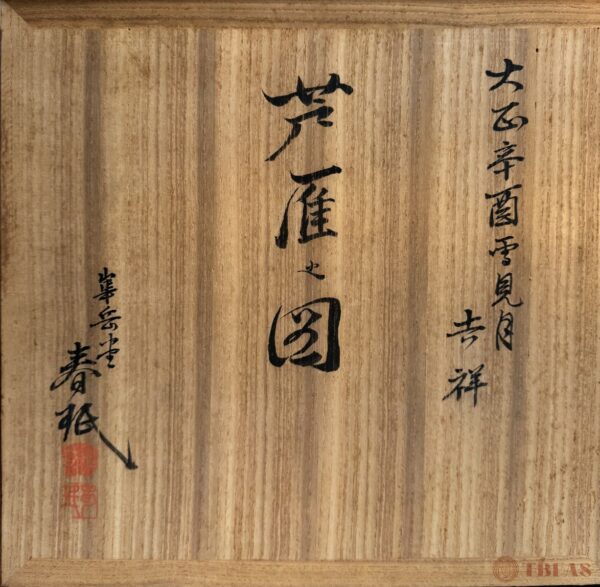 大正辛酉雪見月
吉祥
芦雁之図
華岳堂
春珉
TBLAS